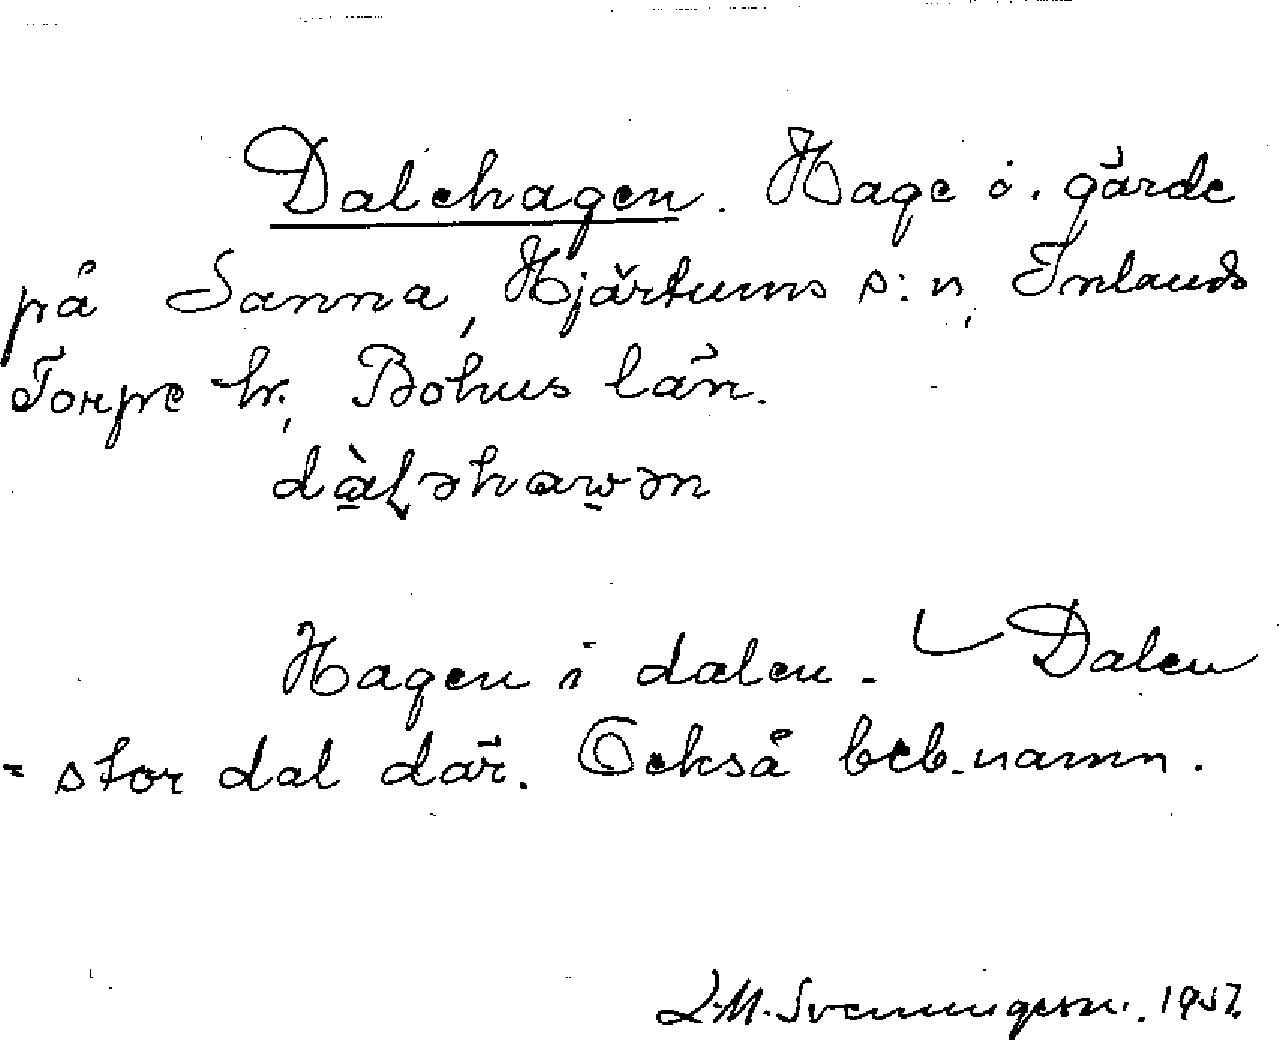 Dalehagen. Hage o. gärde
på Sanna, Hjärtums s:n, Inlands
Torpe hr, Bohus län.
dàl̥əhawən
Hagen i dalen. - Dalen
= stor dal där. Också beb.namn.
L.M. Svenningson. 1957.